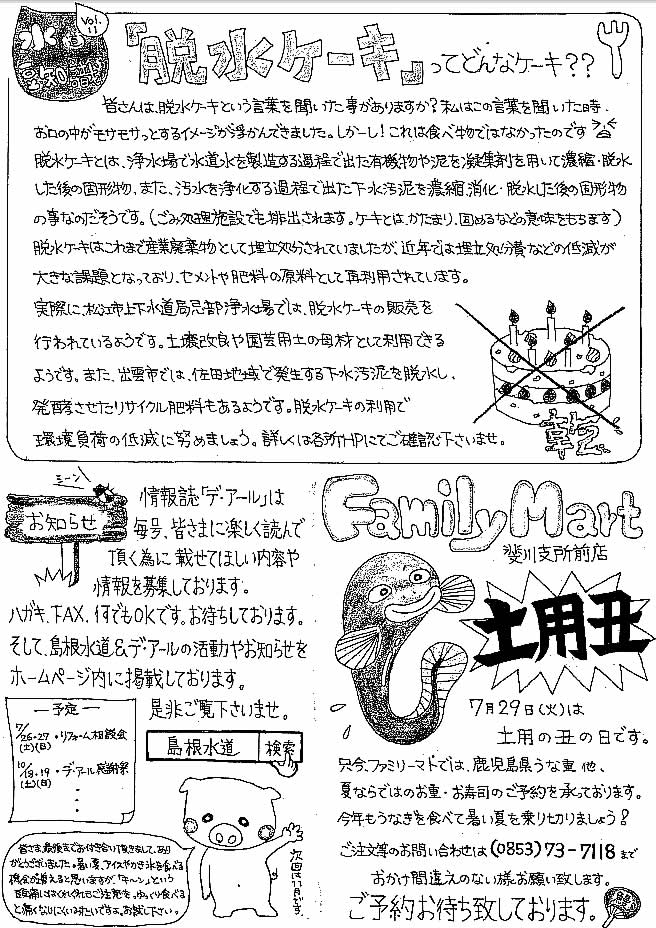 水道
豆知識
Vol.11
「脱水ケーキ」ってどんなケーキ??
皆さんは、脱水ケーキという言葉を聞いた事がありますか?私はこの言葉を聞いた時、
お口の中がモサモサっとするイメージが浮かんできました。しかーし!これは食べ物ではなかったのです
脱水ケーキとは、浄水場で水道水を製造する過程で出た有機物や泥を凝集剤を用いて濃縮・脱水
した後の固形物、また、汚水を浄化する過程で出た下水汚泥を濃縮、消化・脱水した後の固形物
の事なのだそうです。(ごみ処理施設でも排出されます。ケーキとは、かたまり、固めるなどの意味をもちます)
脱水ケーキはこれまで産業廃棄物として埋立処分されていましたが、近年では埋立処分費などの低減が
大きな課題となっており、セメントや肥料の原料として再利用されています。
実際に、松江市上下水道局忌部浄水場では、脱水ケーキの販売を
行われているようです。土壌改良や園芸用土の母材として利用できる
ようです。また、出雲市では、佐田地域で発生する下水汚泥を脱水し、
発酵させたリサイクル肥料もあるようです。脱水ケーキの利用で
環境負荷の低減に努めましょう。詳しくは各所HPにてご確認下さいませ。
乾
ミーン
お知らせ
情報誌「デ・アール」は
毎号、皆さまに楽しく読んで
頂く為に載せてほしい内容や
情報を募集しております。
ハガキ、FAX、何でもOKです。お待ちしております。
そして、島根水道&デ・アールの活動やお知らせを
ホームページ内に掲載しております。
是非ご覧下さいませ。
島根水道 検索
ー予定ー
7/26・27・リフォーム相談会
(土)(日)
10/18・19・デ・アール感謝祭
(土)(日)
皆さま、最後までお付き合い頂きまして、あり
がとうございました。暑い夏、アイスやかき氷を食べる
機会が増えると思いますが、「キーン」という
頭痛にはくれぐれもご注意を。ゆっくり食べる
と痛くなりにくいみたいですよ。お試し下さい。
次回は11月です。
FamilyMart
斐川支所前店
土用丑
7月29日(火)は
土用の丑の日です。
只今、ファミリーマートでは、鹿児島県うな重他、
夏ならではのお重・お寿司のご予約を承っております。
今年もうなぎを食べて暑い夏を乗り切りましょう!
ご注文等のお問い合わせは(0853)73-7118まで
おかけ間違えのない様お願い致します。
ご予約お待ち致しております。